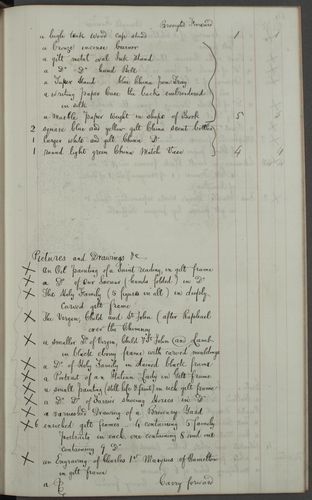 Brought Forward
a high teak wood cap stand 1
a bronze incense burner
a gilt metal oval Ink Stand
a Do Do hand Bell
a Taper Stand blue China pen Tray
a writing paper Case the back embroidered
in silk
a Marble paper weight in shape of Book 5
2 square blue and yellow gilt China scent bottles
1 larger white and gilt China Do
1 round light green China Match Vase 4
Pictures and Drawings &c
X an Oil painting of a Saint reading, in gilt frame
X a Do of Our Saviour (hands folded) in Do
X The Holy Family (5 figures in all) in deeply
carved gilt frame
X The Virgin, Child and St John (after Raphael
over the Chimney
X a smaller Do of Virgin Child & St John (and Lamb
in black ebony frame with carved mouldings
X a Do of Holy Family in stained black frame
X a Portrait of an Italian Lady in Gilt frame
X a small painting (still life & fruit) in each gilt frame
X a Do Do of Farrier shoeing Horses in Do
X a varnished Drawing of a
X 6 enriched gilt frames 4 containing 5 family
portraits in each, one containing 8 and one
containing 9 Do
X an Engraving of Charles 1st Marquis of Hamilton
in gilt frame
a
Carry forward